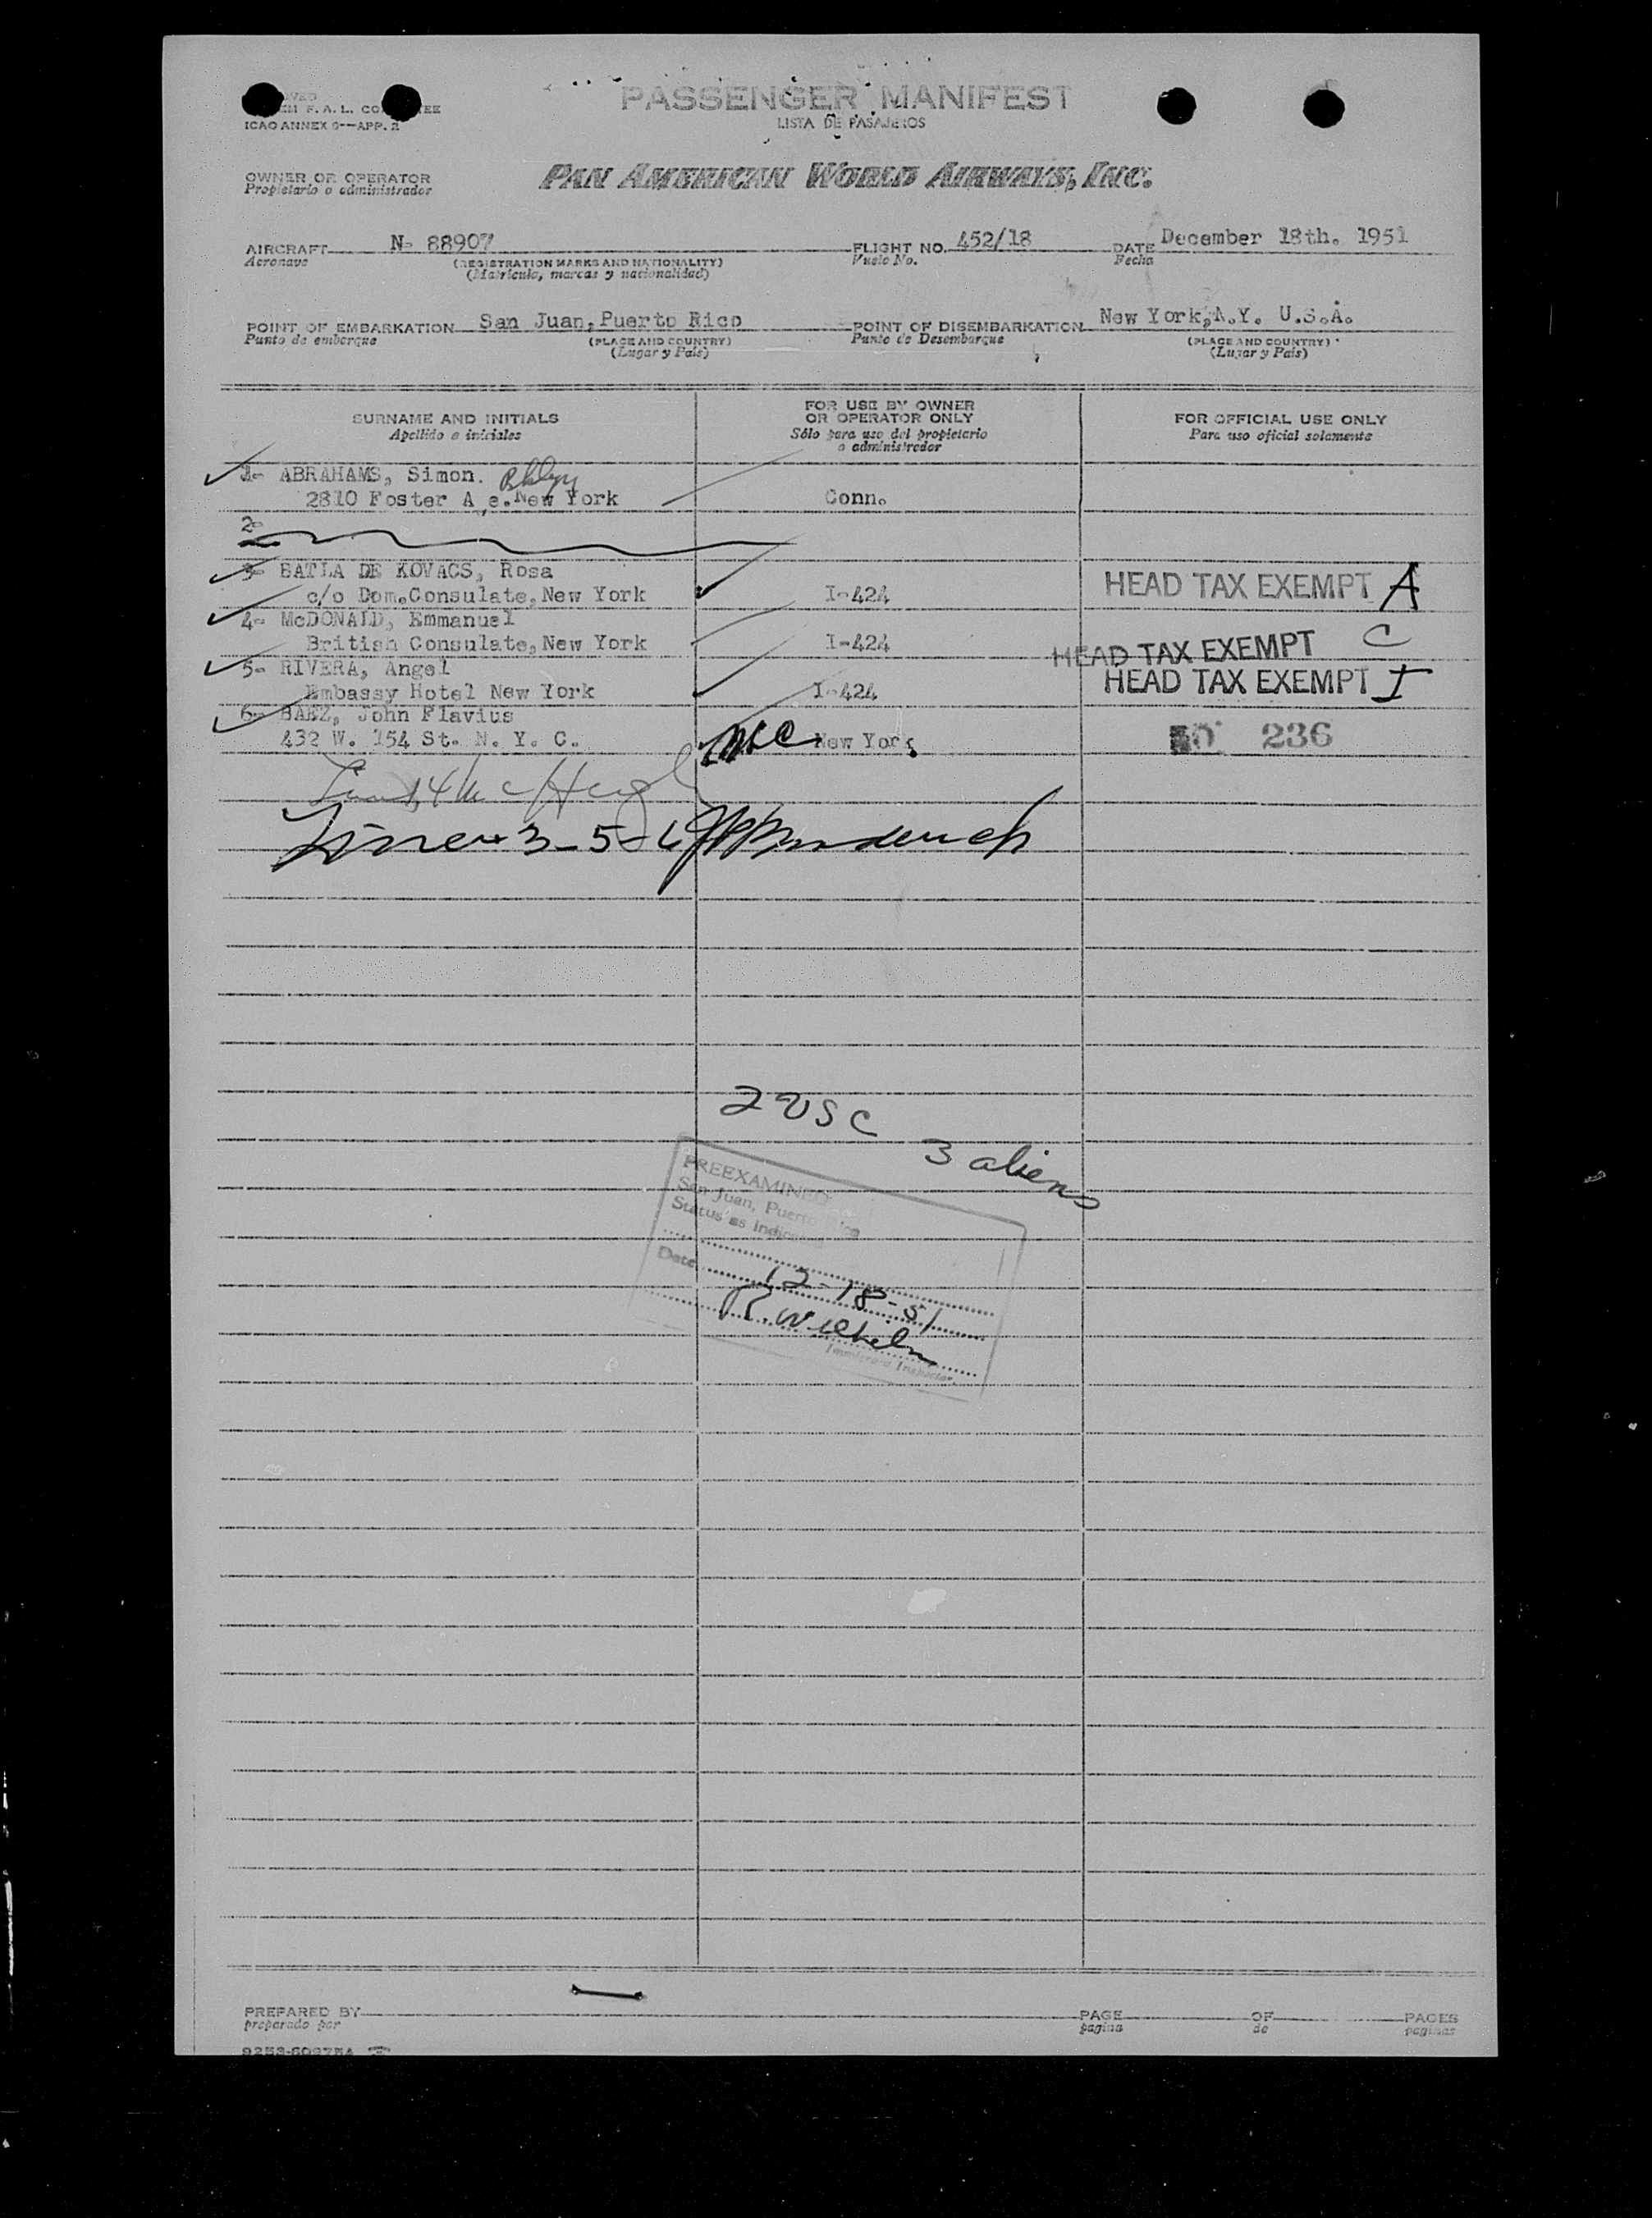 F.A.L.
ICAO ANNEX 9—APP. 2
PASSENGER MANIFEST
LISTA DE PASAJEROS
OWNER OR OPERATOR
Propietario o administrador
PAN AMERICAN WORLD AIRWAYS, INC.
AIRCRAFT N- 88907 FLIGHT NO. 452/18 DATE December 18th. 1951
Aeronave (REGISTRATION MARKS AND NATIONALITY) Vuelo No. Fecha
(Matricula, marcas y nacionalidad)
POINT OF EMBARKATION San Juan, Puerto Rico POINT OF DISEMBARKATION New York, N.Y. U.S.A.
Punto de embarque (PLACE AND COUNTRY) Punto de Desembarque (PLACE AND COUNTRY)
(Lugar y Pais) (Lugar y Pais)
SURNAME AND INITIALS
Apellido e iniciales
FOR USE BY OWNER
OR OPERATOR ONLY
Sólo para uso del propietario
o administrador
FOR OFFICIAL USE ONLY
Para uso oficial solamente
1- ABRAHAMS, Simon. Bklyn
2810 Foster A e. New York Conn.
2-
3- BATLA DE KOVACS, Rosa
c/o Dom.Consulate, New York I-424 HEAD TAX EXEMPT A
4- McDONALD, Emmanuel
British Consulate, New York I-424 HEAD TAX EXEMPT C
5- RIVERA, Angel
Embassy Hotel New York I-424 HEAD TAX EXEMPT I
6- BAEZ, John Flavius
432 W. 154 St. N. Y. C. New York 236
1, 4 McHugh
Lines 3-5-6
2 USC
3 aliens
PREEXAMINED
San Juan, Puerto Rico
Status as indicated
Date 12-18-51
R. Wilhelm
Immigrant Inspector
PREPARED BY PAGE OF PAGES
preparado por pagina de paginas